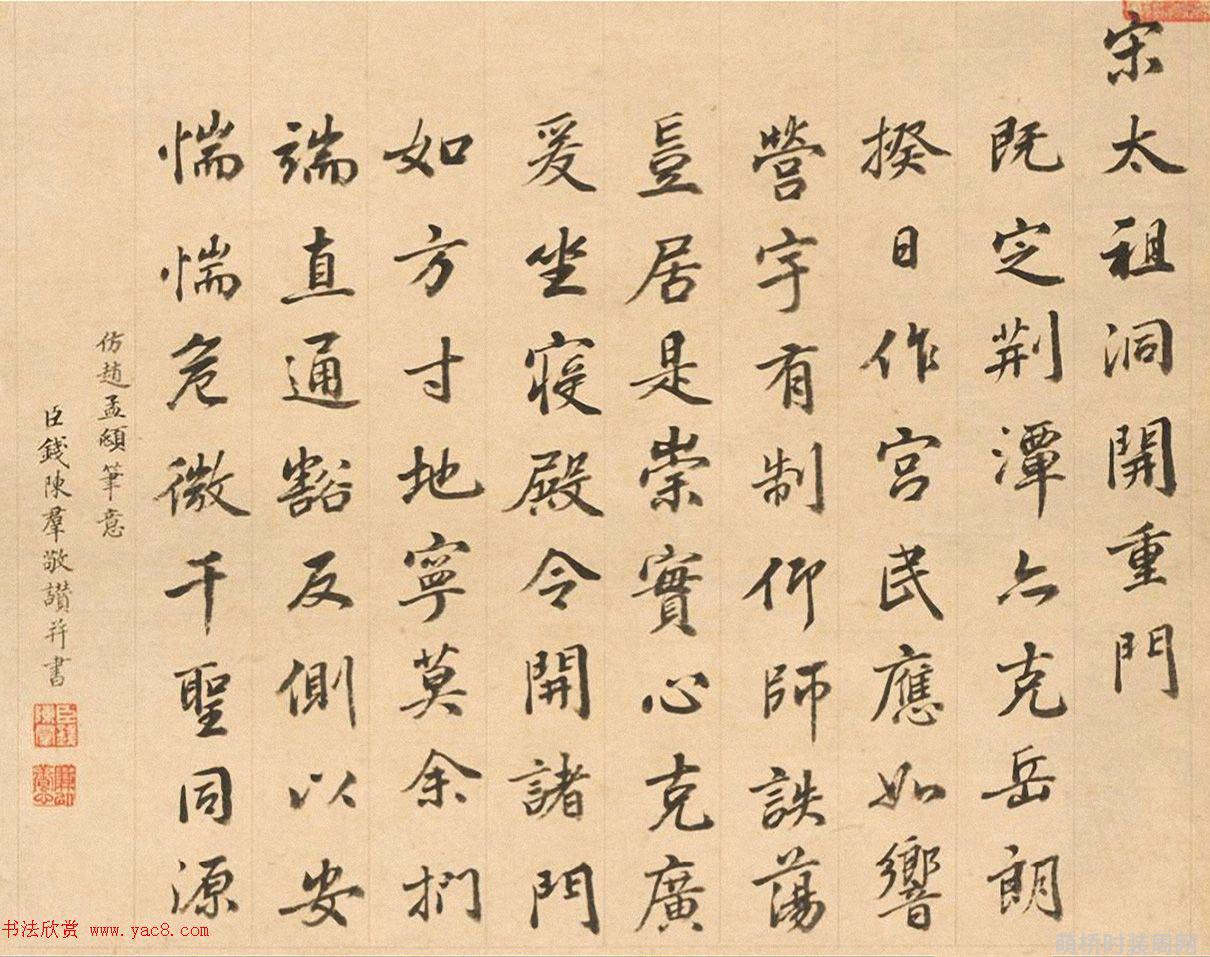 宋太祖洞開重門
既定荆潭亦克岳朗
揆日作宫民應如響
營宇有制仰師詄蕩
豈居是崇實心克廣
爰坐寝殿令開諸門
如方寸地寧莫余捫
端直通豁反側以安
惴惴危微千聖同源
仿趙孟頫筆意
臣錢陳羣敬讃并書
书法欣赏 www.yac8.com
萌桥时装周网